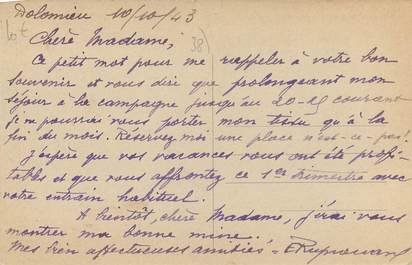 Dolomieu 10/10/43
Chère Madame,
Ce petit mot pour me rappeler à votre bon
souvenir et vous dire que prolongeant mon
séjour à la campagne jusqu'au 20-25 courant
je ne pourrai vous porter mon tissu qu'à la
fin du mois. Réservez moi une place n'est-ce-pas!
J'espère que vos vacances vous ont été profi-
tables et que vous affrontez ce 1er trimestre avec
votre entrain habituel.
A bientôt, chère Madame, j'irai vous
montrer ma bonne mine.
Mes bien affectueuses amitiés -